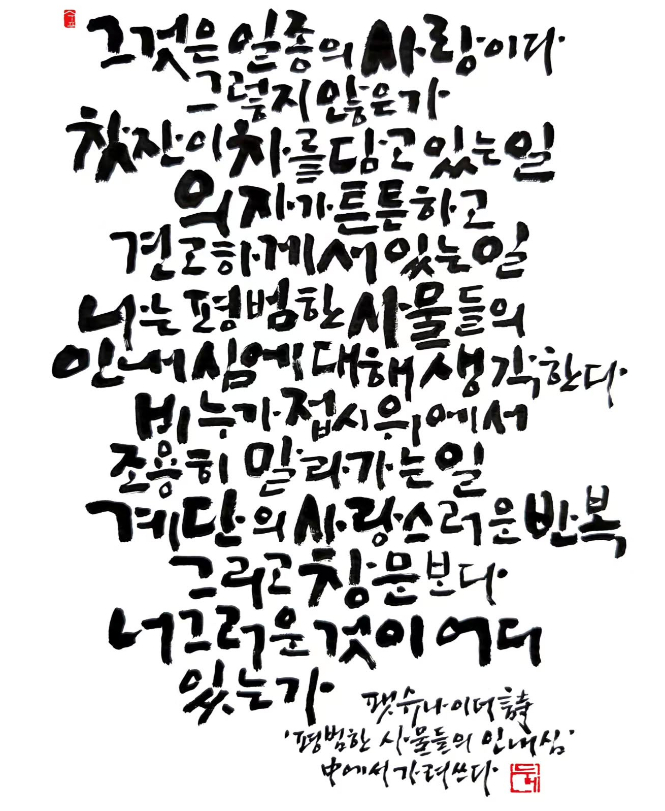 그것은 일종의 사랑이다
그렇지 않은가
찻잔이 차를 담고 있는 일
의자가 튼튼하고
견고하게 서 있는 일
나는 평범한 사물들의
인내심에 대해 생각한다
비누가 접시 위에서
조용히 말라가는 일
계단의 사랑스러운 반복
그리고 창문보다
너그러운 것이 어디
있는가
팻 슈나이더 詩
'평범한 사물들의 인내심'
中에서 가려쓰다